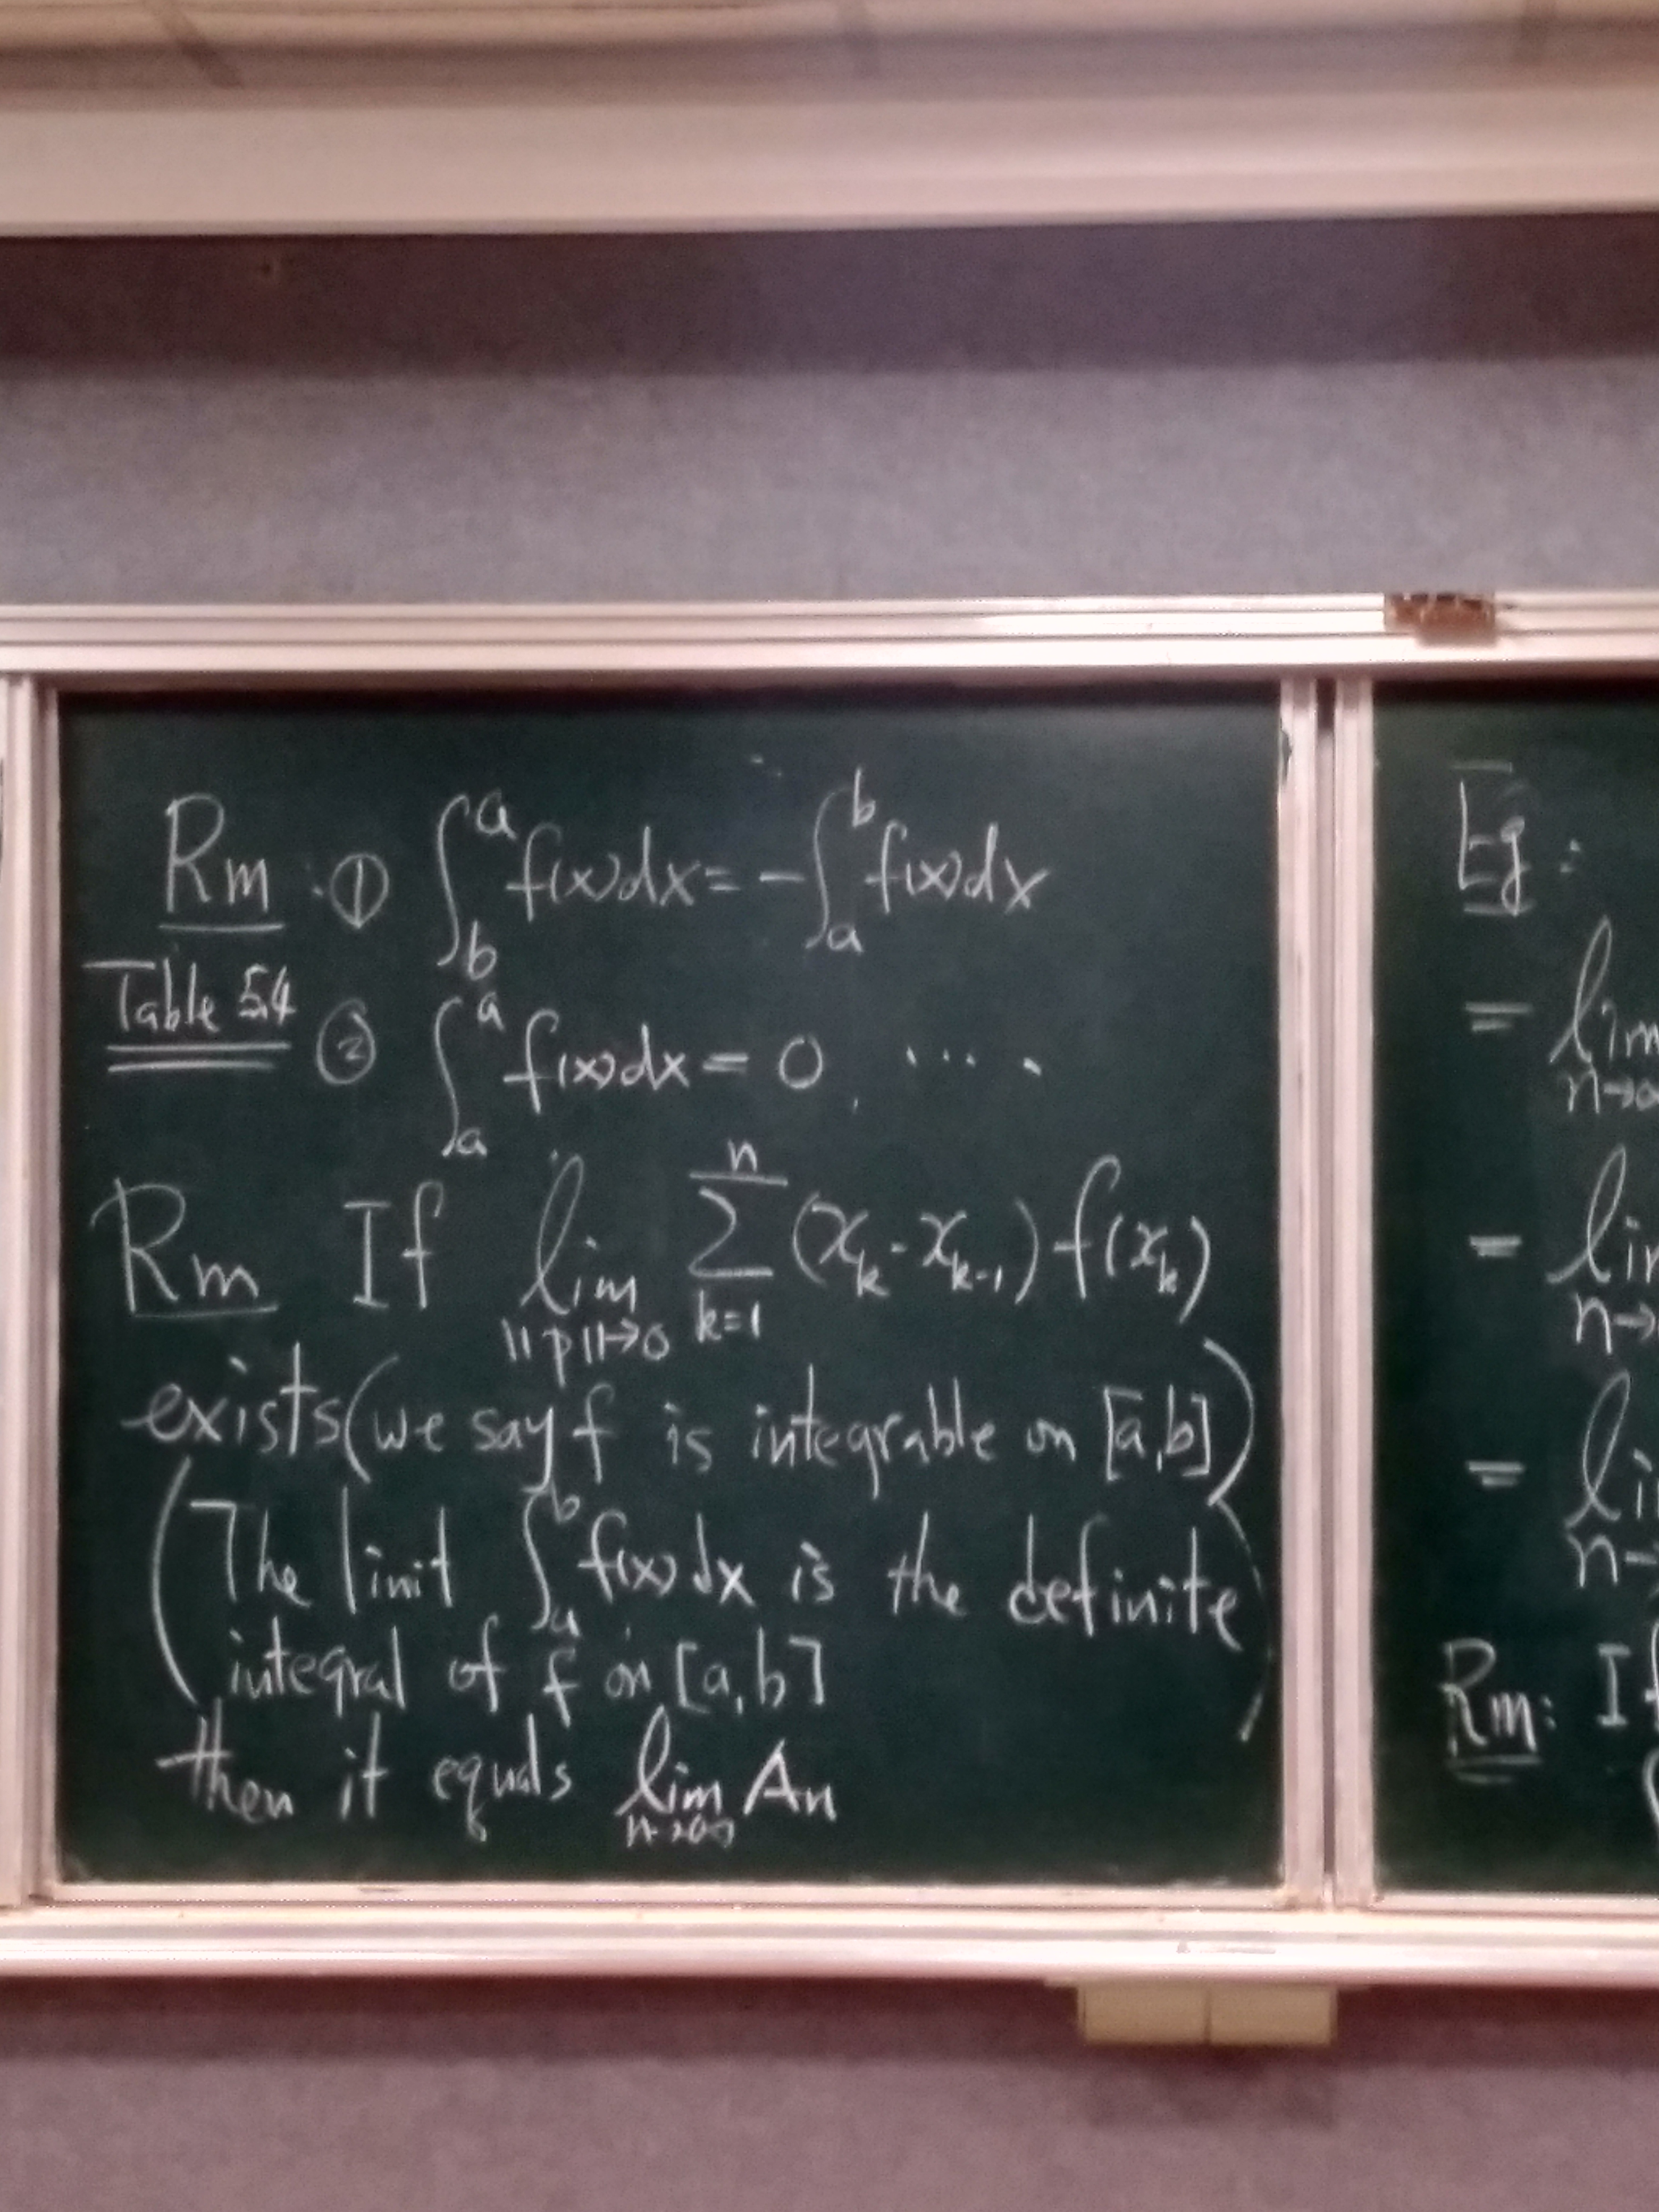 Rm : ① ∫_b^a f(x)dx = -∫_a^b f(x)dx
Table 5.4
② ∫_a^a f(x)dx = 0, ....
Rm If lim_{||p||→0} ∑_{k=1}^n (x_k - x_{k-1}) f(x_k)
exists (we say f is integrable on [a,b])
(The limit ∫_a^b f(x)dx is the definite
integral of f on [a,b])
then it equals lim_{n→∞} An
Eg:
= lim n→∞
= lim n→
= lim n→
Rm: If